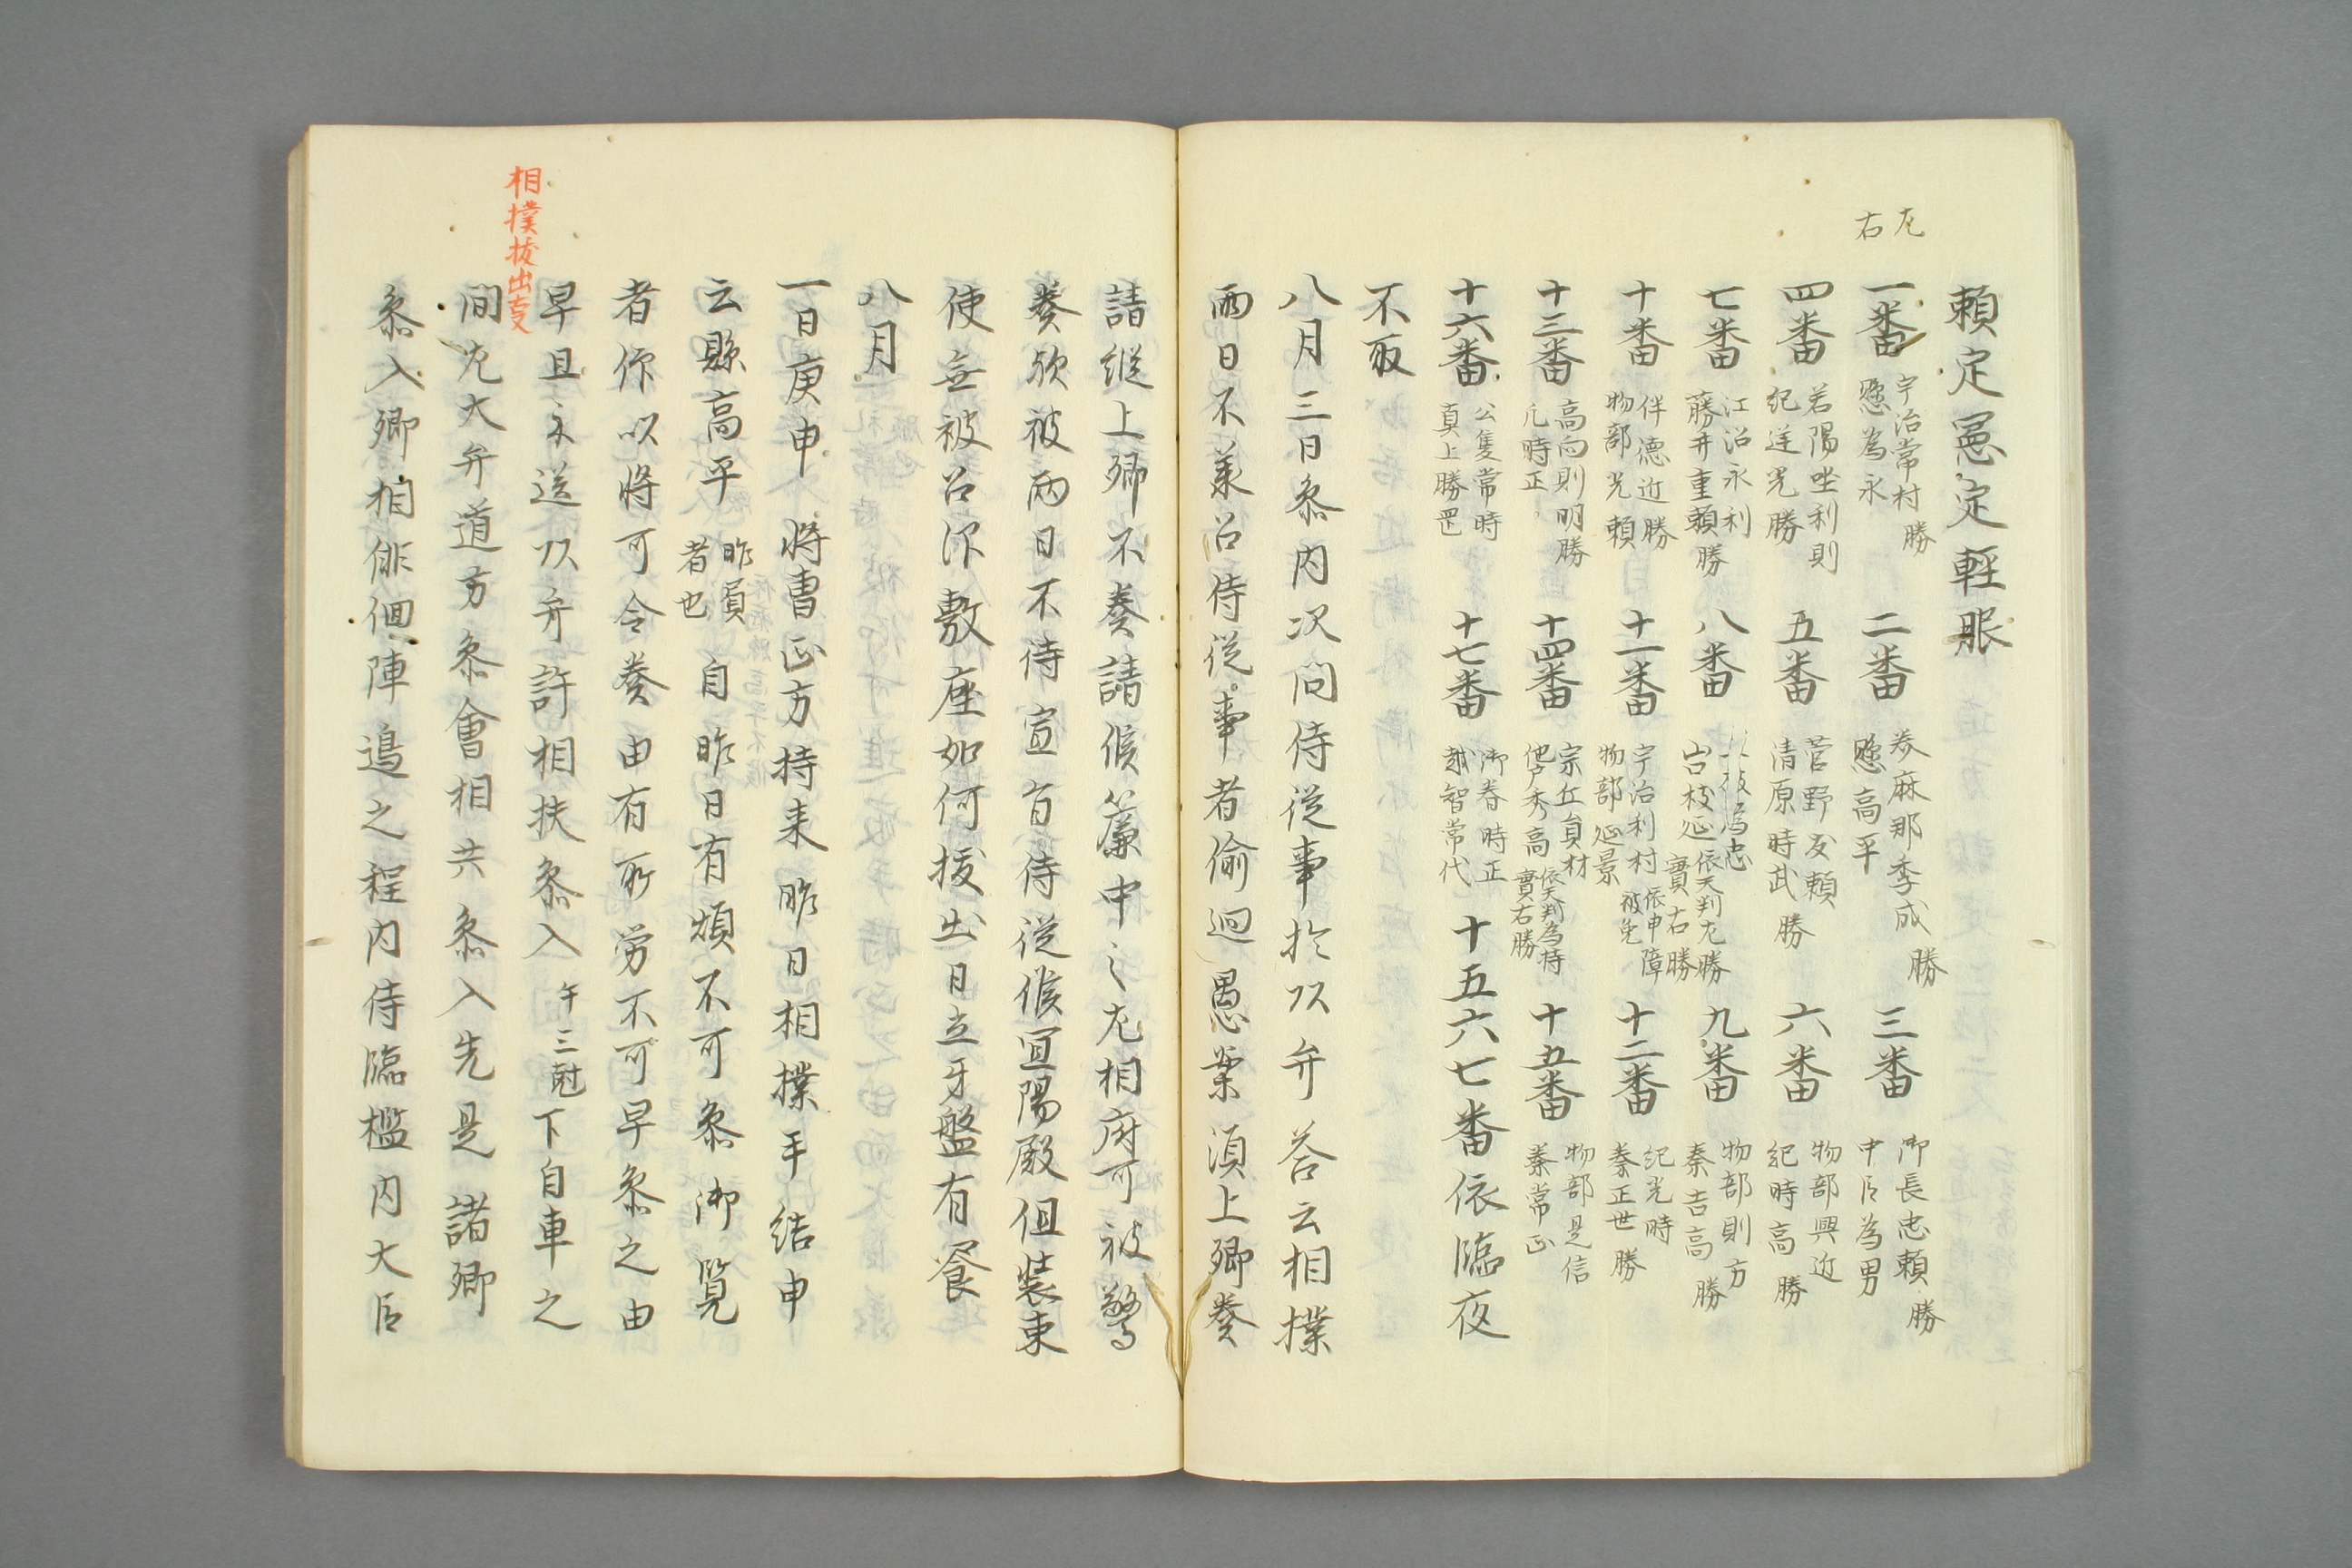 頼定愚定軽服
左
右
一番 宇治常村勝 縣為永 二番 参麻那季成勝 縣高平 三番 御長忠頼勝 中臣為男
四番 若陽唑利則 紀遅光勝 五番 菅野友頼 清原時武勝 六番 物部興近 紀時高勝
七番 江沼永利 藤井重頼勝 八番 為忠 依天判左勝 實右勝 九番 物部則方 秦吉高勝
十番 伴徳近勝 物部光頼 十一番 宇治利村 物部延景 依申障被免 十二番 紀光時 秦正世勝
十三番 高向則明勝 凡時正 十四番 宗丘員材 他戸秀高 依天判為持 實右勝 十五番 物部是信 秦常正
十六番 公隻常時 真上勝岡 十七番 御春時正 越智常代 十五六七番依臨夜
不取
八月三日参内次問侍従事於以弁答云相撲
両日不義召侍従事者偷廻愚案湏上卿奏
請縦上卿不奏請候簾中之左相府可被驚
奏欤彼両日不待宣旨侍従候冝陽殿但装束
使無被召仰敷座如何抜出日立牙盤有飡
八月
一日庚申 将曹正方持来昨日相撲手結申
云縣高平 昨負者也 自昨日有煩不可参御覧
者仰以将可令奏由有所労不可早参之由
相撲抜出事
早且示送以弁許相扶参入 午三尅 下自車之
間左大弁道方参會相共参入先是諸卿
参入卿相俳佪陣邉之程内侍臨檻内大臣